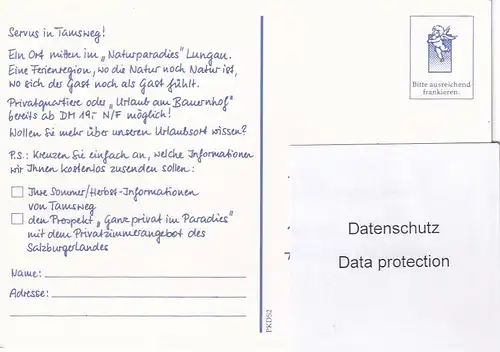 Servus in Tamsweg!
Ein Ort mitten im „Naturparadies" Lungau.
Eine Ferienregion, wo die Natur noch Natur ist,
wo sich der Gast noch als Gast fühlt.
Privatquartiere oder „Urlaub am Bauernhof"
bereits ab DM 19,- N/F möglich!
Wollen Sie mehr über unseren Urlaubsort wissen?
P.S.: Kreuzen Sie einfach an, welche Informationen
wir Ihnen kostenlos zusenden sollen:
Ihre Sommer/Herbst-Informationen
von Tamsweg
den Prospekt „Ganz privat im Paradies"
mit dem Privatzimmerangebot des
Salzburgerlandes
Name:
Adresse:
PKDS2
Bitte ausreichend
frankieren.
Datenschutz
Data protection